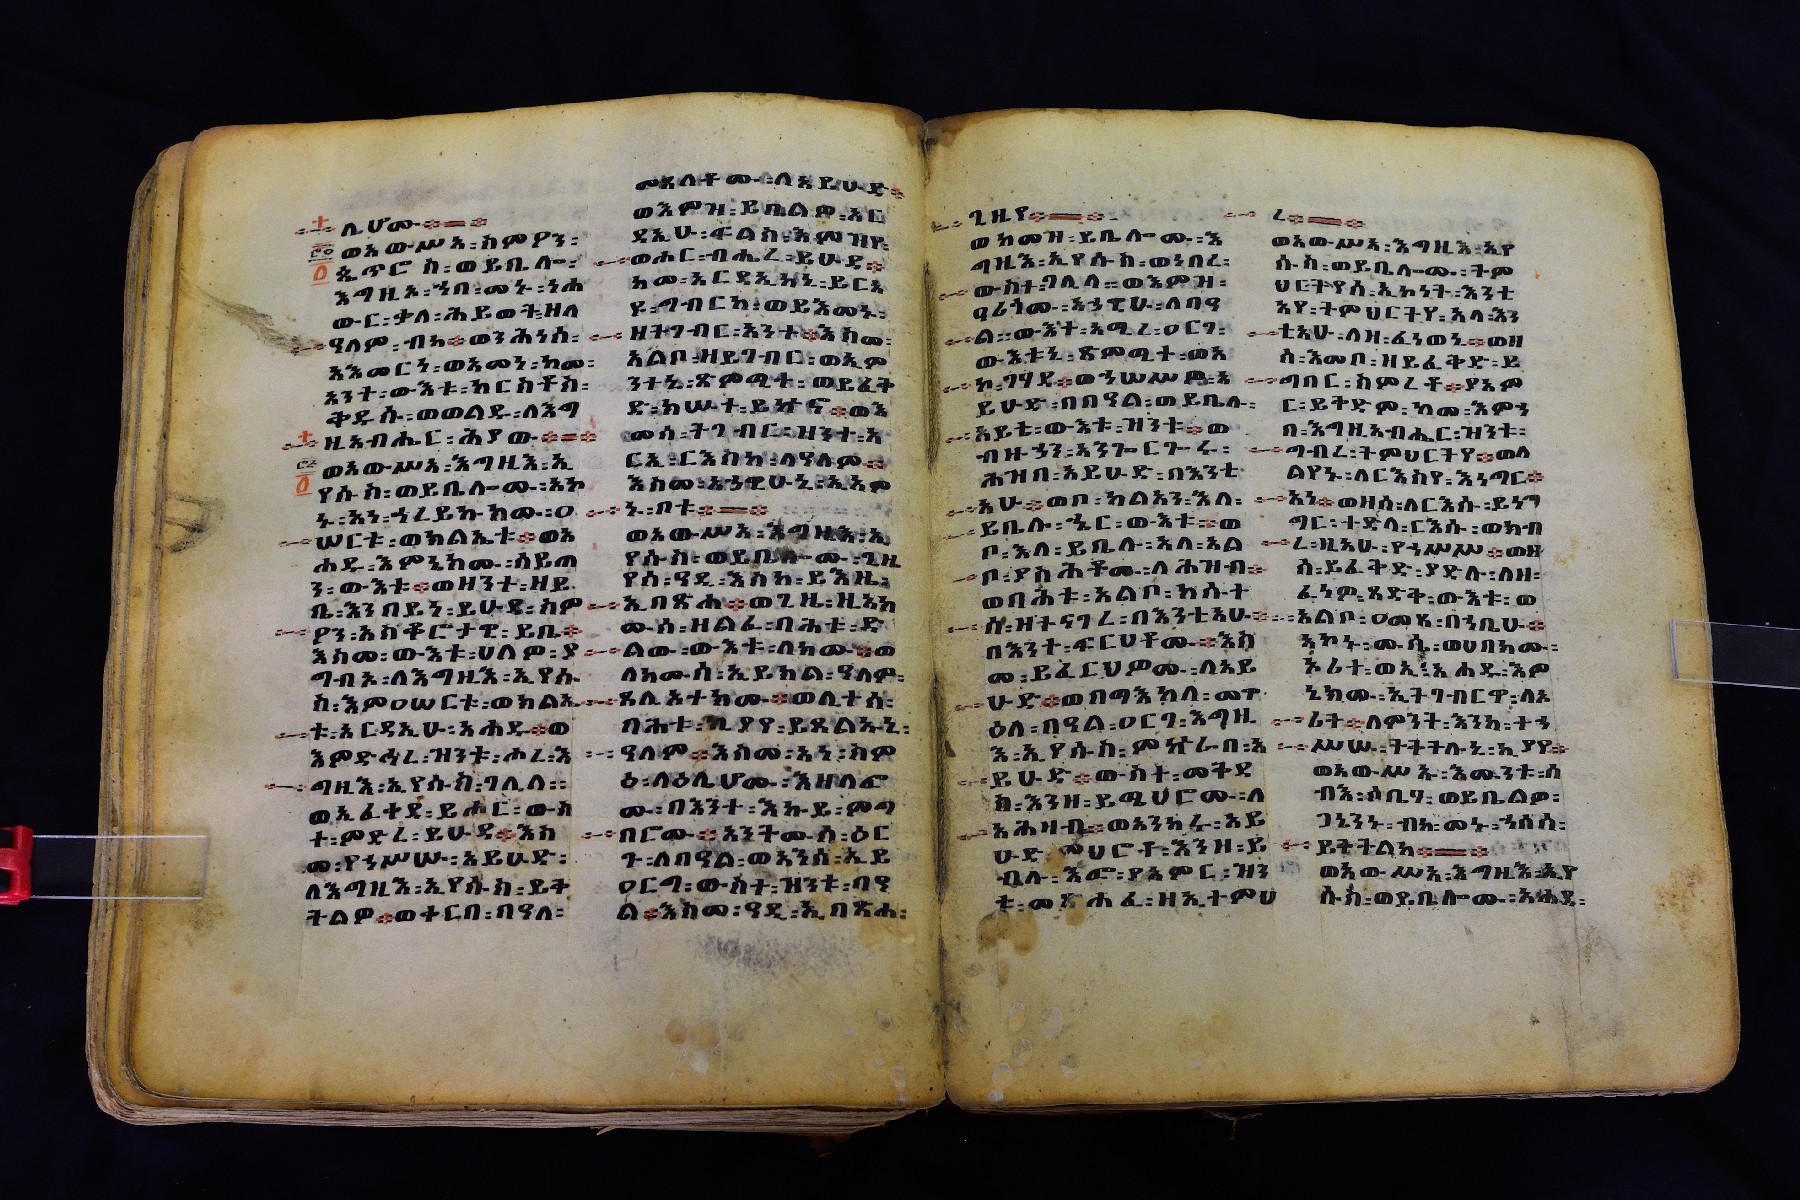 ሊሆሙ፨
ወአውሥአ፡ስምዖን፡
ጴጥሮስ፡ወይቤሎ፡
እግዚኦ፡ኀበ፡መኑ፡ነሐ
ውር፡ቃለ፡ሕይወት፡ዘለ
ዓለም፡ብከ፨ወንሕነሰ፡
አእመርነ፡ወአመነ፡ከመ፡
አንተ፡ውእቱ፡ክርስቶስ፡
ቅዱሱ፡ወወልዱ፡ለእግ
ዚአብሔር፡ሕያው፨
ወአውሥአ፡እግዚእ፡ኢ
የሱስ፡ወይቤሎሙ፡አኮ
ኑ፡አነ፡ኀረይኩክሙ፡ዐ
ሠርቱ፡ወክልኤቱ፨ወአ
ሐዱ፡እምኔክሙ፡ሰይጣ
ን፡ውእቱ፨ወዘንተ፡ዘይ
ቤ፡እንበይነ፡ይሁዳ፡ስም
ዖን፡አስቆሮታዊ፡ይቤ፨
እስመ፡ውእቱ፡ሀለዎ፡ያ
ግብኦ፡ለእግዚእ፡ኢየሱ
ስ፡እምዐሠርቱ፡ወክልኤ
ቱ፡አርዳኢሁ፡አሐዱ፨ወ
እምድኅረ፡ዝንቱ፡ሖረ፡እ
ግዚእ፡ኢየሱስ፡ገሊላ፡
ወኢፈቀደ፡ይሑር፡ውስ
ተ፡ምድረ፡ይሁዳ፨እስ
መ፡የኀሥሡ፡አይሁድ፡
ለእግዚእ፡ኢየሱስ፡ይቅ
ትልዎ፨ወቀርበ፡በዓለ፡
መጸለቶሙ፡ለአይሁድ፨
ወእምዝ፡ይቤልዎ፡አር
ዳኢሁ፡ፍልስ፡እምዝየ፡
ወሑር፡ብሔረ፡ይሁዳ፨
ከመ፡አርዳኢከኒ፡ይርአ
ዩ፡ግብርከ፡ወይእመኑ፡
ዘትገብር፡አንተ፨እስመ፡
አልቦ፡ዘይገብር፡ወኢም
ንተኒ፡ጽምሚተ፡ወይፈቅ
ድ፡ክሡተ፡ይኩኖ፨ወእ
መሰ፡ትገብር፡ዝንተ፡አ
ርኢ፡ርእስከ፡ለዓለም፨
እስመ፡አኀዊሁኒ፡ኢአም
ኑ፡ቦቱ፨
ወአውሥአ፡እግዚእ፡ኢ
የሱስ፡ወይቤሎሙ፡ጊዜ
የሰ፡ዓዲ፡እስከ፡ይእዜ፡
ኢበጽሐ፨ወጊዜ፡ዚአክ
ሙሰ፡ዘልፈ፡በሕቱ፡ድ
ልው፡ውእቱ፡ለክሙ፨ወ
ለክሙሰ፡ኢይክል፡ዓለም፡
ጸሊአተክሙ፨ወሊተሰ፡
በሕቱ፡ኪያየ፡ይጸልኡኒ፡
ዓለም፨እስመ፡አነ፡ስም
ዕ፡ለዕሊሆሙ፡እዘለፎ
ሙ፡በእንተ፡እኩይ፡ምግ
ባሮሙ፨አንትሙሰ፡ዕር
ጉ፡ለበዓል፡ወአንሰ፡ኢይ
ዐርግ፡ውስተ፡ዝንቱ፡በዓ
ል፨እስመ፡ዓዲ፡ኢበጽሐ፡
ጊዜየ፨
ወከመዝ፡ይቤሎሙ፡እ
ግዚእ፡ኢየሱስ፡ወነበረ፡
ውስተ፡ገሊላ፡ወእምዝ፡
ዐሪጎሙ፡አኀዊሁ፡ለበዓ
ል፡ውእተ፡አሚረ፡ዐርገ፡
ውእቱኒ፡ጽምሚተ፡ወአ
ኮ፡ገሃደ፨ወኀሠሥዎ፡አ
ይሁድ፡በበዓል፡ወይቤሉ፡
አይቴ፡ውእቱ፡ዝንቱ፨ወ
ብዙኃን፡አንጐርጐሩ፡
ሕዝበ፡አይሁድ፡በእንቲ
አሁ፨ወቦ፡ካልአን፡እለ፡
ይቤሉ፡ኄር፡ውእቱ፨ወ
ቦ፡እለ፡ይቤሉ፡አላ፡አል
ቦ፡ያስሕቶሙ፡ለሕዝብ፨
ወባሕቱ፡አልቦ፡ክሱተ
ሰ፡ዘተናገረ፡በእንቲአሁ፨
በእንተ፡ፍርሀቶሙ፨እስ
መ፡ይፈርህዎሙ፡ለአይ
ሁድ፨ወበማእከለ፡መዋ
ዕለ፡በዓል፡ዐርገ፡እግዚ
እ፡ኢየሱስ፡ምኵራበ፡አ
ይሁድ፨ውስተ፡መቅደ
ስ፡እንዘ፡ይሜህሮሙ፡ለ
አሕዛብ፨ወአንከሩ፡አይ
ሁድ፡ምህሮቶ፡እንዘ፡ይ
ብሉ፡እፎ፡ያአምር፡ዝን
ቱ፡መጽሐፈ፡ዘኢተምህ
ረ፨
ወአውሥአ፡እግዚእ፡ኢየ
ሱስ፡ወይቤሎሙ፡ትም
ህርትየሰ፡ኢኮነት፡እንቲ
አየ፡ትምህርትየ፡አላ፡እን
ቲአሁ፡ለዘ፡ፈነወኒ፨ወዘ
ሰ፡እመቦ፡ዘይፈቅድ፡ይ
ግበር፡ስምረቶ፨ያአም
ር፡ይቅድም፡ከመ፡እምኀ
በ፡እግዚአብሔር፡ዝንቱ፡
ግብረ፡ትምህርትየ፨ወለ
ልየኑ፡ለርእስየ፡እነግር፨
አነ፨ወዘሰ፡ለርእሱ፡ይነግ
ግር፡ተድላ፡ርእሱ፡ወክብ
ረ፡ዚአሁ፡የኀሥሥ፨ወዘ
ሰ፡ይፈቅድ፡ያድሉ፡ለዘ፡
ፈነዎ፡ጻድቅ፡ውእቱ፡ወ
አልቦ፡ዐመፃ፡በኀቤሁ፨
አኮኑ፡ሙሴ፡ወሀበክሙ፡
ኦሪተ፡ወኢ፩አሐዱ፡እም
ኔክሙ፡ኢትገብርዋ፡ለኦ
ሪት፨ለምንት፡እንከ፡ተኀ
ሥሡ፡ትቅትሉኒ፡ኪያየ፨
ወአውሥኡ፡እሙንቱ፡ሰ
ብእ፡ወይቤልዎ፡
ጋኔንኑ፡ብከ፡መኑ፡ኀሰሰ፡
ይቅትልከ፨
ወአውሥአ፡እግዚእ፡ኢየ
ሱስ፡ወይቤሎሙ፡አሐደ፡